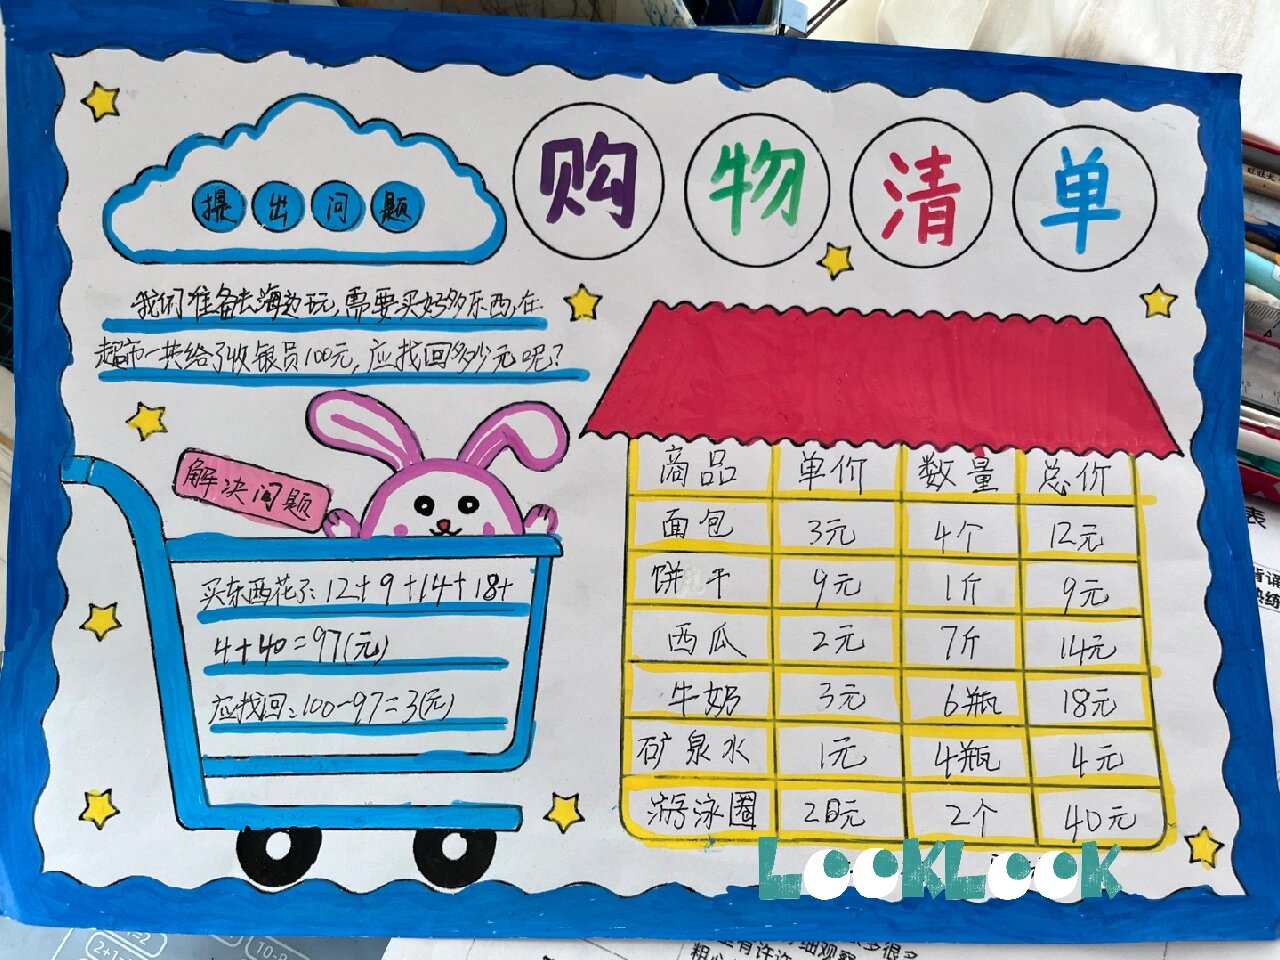 购物清单
提出问题
我们准备去海边玩,需要买好多东西,在
超市一共给了收银员100元,应找回多少元呢?
解决问题
买东西花了:12+9+14+18+
4+40=97(元)
应找回:100-97=3(元)
商品 单价 数量 总价
面包 3元 4个 12元
饼干 9元 1斤 9元
西瓜 2元 7斤 14元
牛奶 3元 6瓶 18元
矿泉水 1元 4瓶 4元
游泳圈 20元 2个 40元
LOOKLOOK